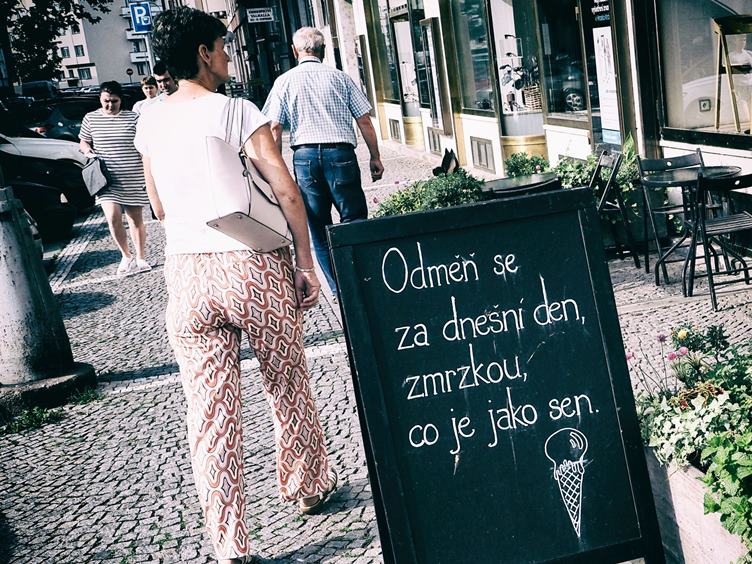 P
Odměň se
za dnešní den,
zmrzkou,
co je jako sen.